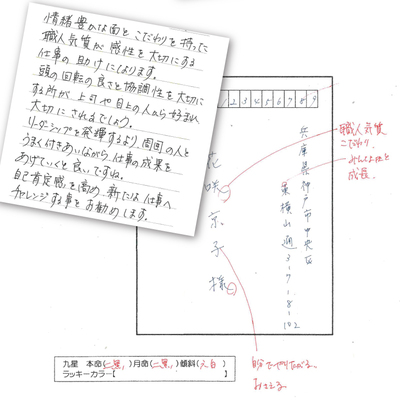 情緒豊かな面とこだわりを持った
職人気質が感性を大切にする
仕事の助けになります。
頭の回転の良さと協調性を大切に
する所が上司や目上の人から好まれ
大切にされるでしょう。
リーダーシップを発揮するより、周囲の人と
うまく付きあいながら仕事の成果を
あげていくと良いですね。
自己肯定感を高め、新たな仕事へ
チャレンジする事をお勧めします。
1 2 3 4 5 6 7 8 9
兵庫県神戸市中央区
東横山通3-7-8-102
花咲京子様
職人気質
こだわり
みんなと
成長
自分でやりたがる。
おさえる。
九星 本命(二黒)月命(二黒)傾斜(八白)
ラッキーカラー【 】